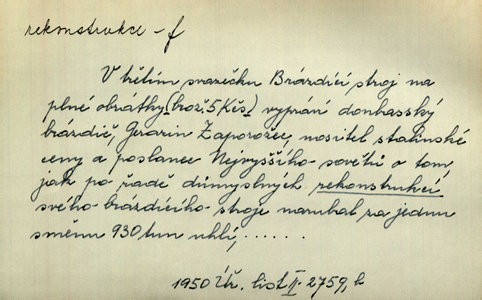 rekonstrukce -f
V bělím svazečku Brázdicí stroj na
plné obrátky (brož. 5 Kčs) vypráví donbasský
brázdič, Gerasin Záporožec, nositel stalinské
ceny a poslanec Nejvyššího sovětu o tom,
jak po řadě důmyslných rekonstrukcí
svého brázdicího stroje narubal za jednu
směnu 930 tun uhlí, ......
1950 Úř. list II. 2759, b